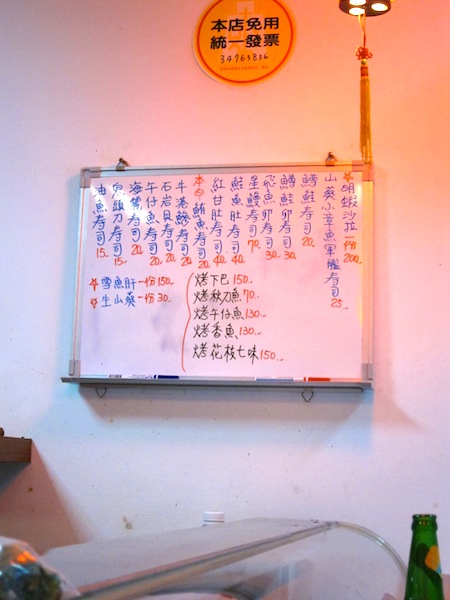 本店免用
統一發票
34763836
☆明蝦沙拉一份200.
山葵小章魚軍艦壽司25.
鱒鮭寿司20.
鱒鮭卵寿司30.
飛魚卵寿司30.
星鰻寿司70.
鮭魚肚寿司40.
紅甘肚寿司40.
本白鮪魚寿司20.
牛港鰺寿司20.
石岩貝寿司20.
午仔魚寿司20.
海鱺寿司20.
鬼頭刀寿司15.
油魚寿司15.
☆雪魚肝一份150.
☆生山葵一份30.
烤下巴150.
烤秋刀魚70.
烤午仔魚130.
烤香魚130.
烤花枝七味150.